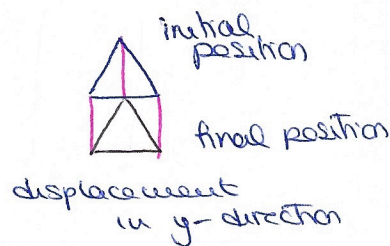 initial
position
final position
displacement
in y-direction